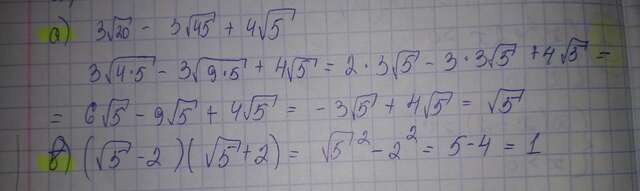 а) 3√20 - 3√45 + 4√5
3√4·5 - 3√9·5 + 4√5 = 2·3√5 - 3·3√5 + 4√5 =
= 6√5 - 9√5 + 4√5 = -3√5 + 4√5 = √5
б) (√5 - 2)(√5 + 2) = √5² - 2² = 5 - 4 = 1